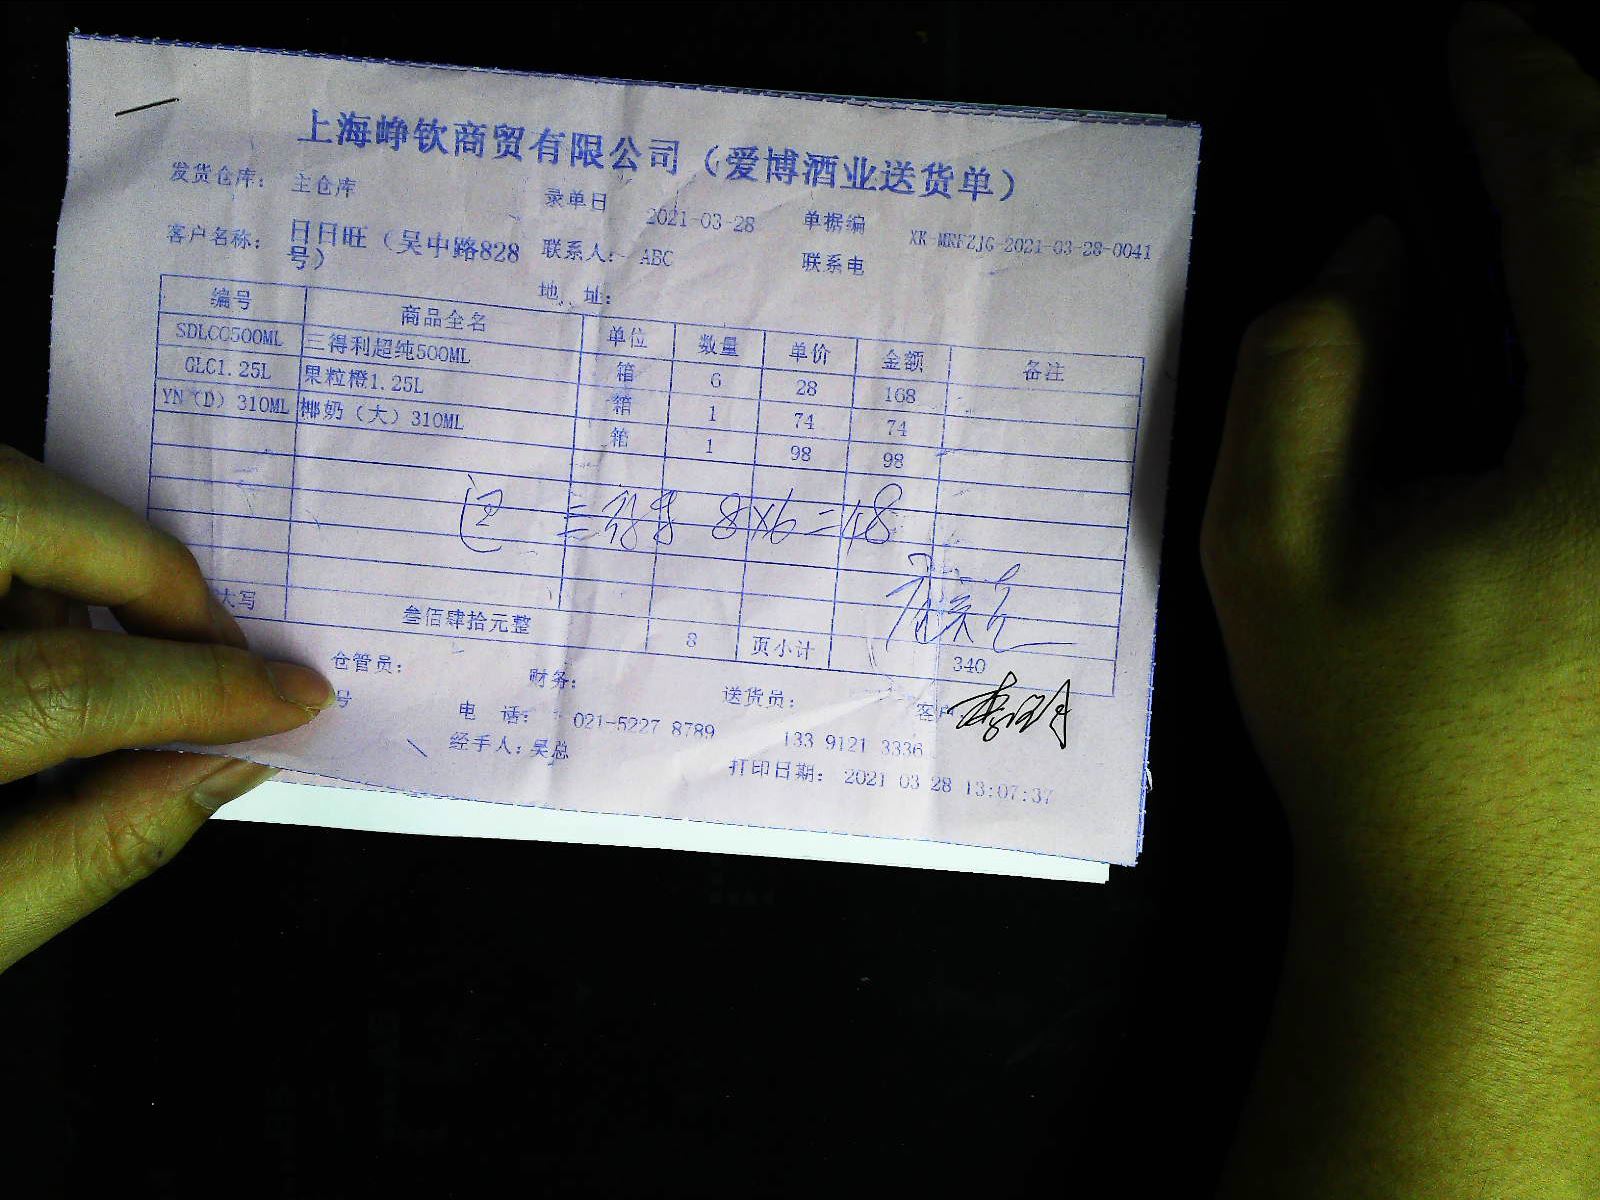 上海峥钦商贸有限公司（爱博酒业送货单）
发货仓库： 主仓库 录单日 2021-03-28 单据编 XK-MRFZJG-2021-03-28-0041
客户名称： 日日旺（吴中路828号） 联系人： ABC 联系电
地 址：
编号 商品全名 单位 数量 单价 金额 备注
SDLCC500ML 三得利超纯500ML 箱 6 28 168
GLC1.25L 果粒橙1.25L 箱 1 74 74
YN（D）310ML 椰奶（大）310ML 箱 1 98 98
三得利 8×6=48
大写 叁佰肆拾元整 8 页小计 340
仓管员： 财务： 送货员： 客户
号 电 话： 021-5227 8789 133 9121 3336
经手人：吴总 打印日期： 2021 03 28 13:07:37